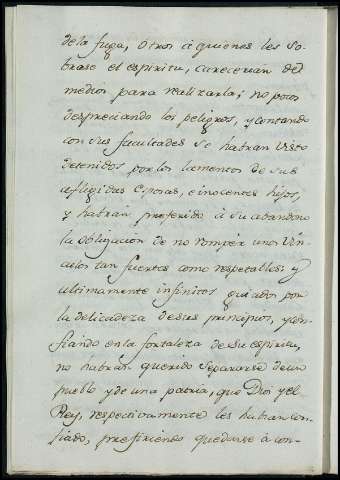 de la fuga, otros à quienes les so-
brase el espiritu, carecerian del
medios para realizarla; no pocos
despreciando los peligros, y contando
con sus facultades se habran visto
detenidos por los lamentos de sus
afligidas esposas, e inocentes hijos,
y habrán preferido à su abandono
la obligacion de no romper unos vin-
culos tan fuertes como respetables: y
ultimamente infinitos guiados por
la delicadeza de sus principios, y con-
fiando en la fortaleza de su espiritu,
no habran querido separarse de un
pueblo y de una patria, que Dios y el
Rey, respectivamente les habran con-
fiado, prefiriendo quedarse à con-